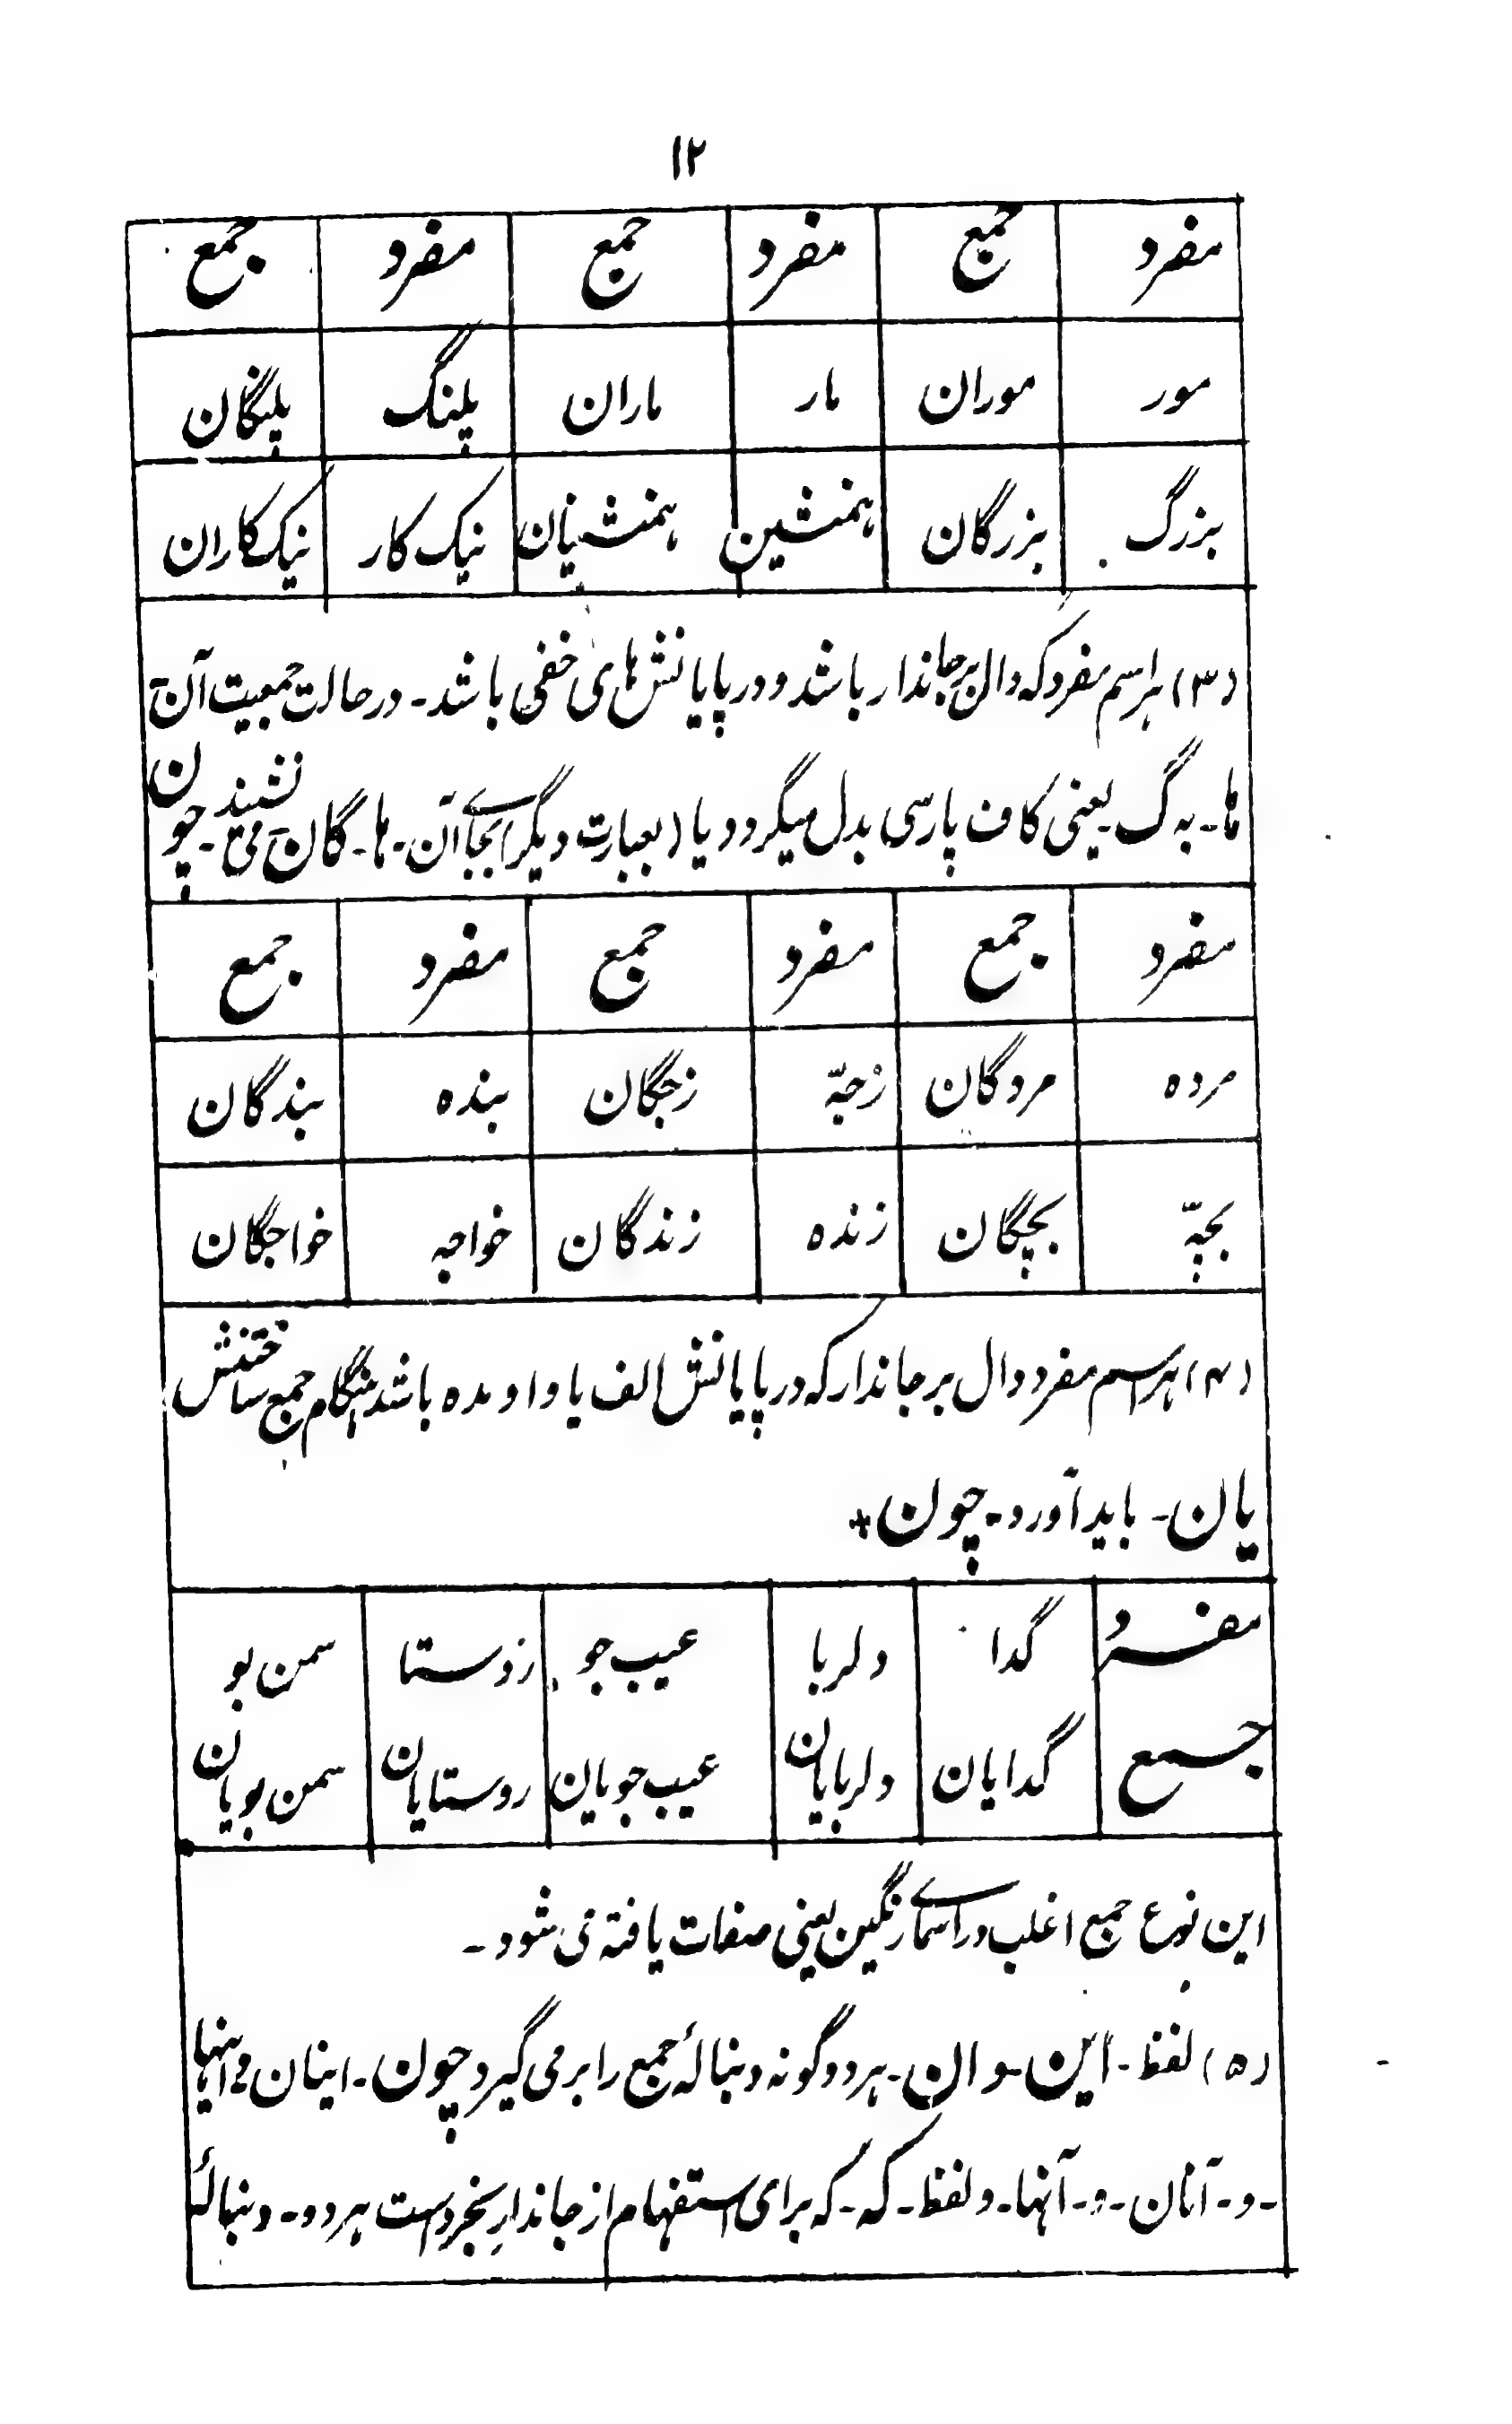 ۱۲
مفرد جمع مفرد جمع مفرد جمع
مور موران مار ماران پلنگ پلنگان
بزرگ بزرگان ہمنشین ہمنشینان نیک کار نیک کاران
(۳) ہر اسم مفرد کہ دال بر جاندار باشد و در پایانش ہای خفی باشد۔ در حالت جمعیت آن
ہا۔ بہ گ یعنی کاف پارسی بدل میگردد یا (بعبارت دیگر) بجاے آن۔ ہا۔ گان می نشیند۔ چون
مفرد جمع مفرد جمع مفرد جمع
مردہ مردگان زچّہ زچگان بندہ بندگان
بچّہ بچگان زندہ زندگان خواجہ خواجگان
(۴) ہر اسم مفرد دال بر جاندار کہ در پایانش الف یا واو مدہ باشد ہنگام جمع ساختنش
یان۔ باید آورد۔ چون*
مفرد گدا دلربا عیب جو روستا سمن بو
جمع گدایان دلربایان عیب جویان روستایان سمن بویان
این نوع جمع اغلب در اسماے رنگین یعنی صفات یافتہ می شود۔
(۵) لفظ۔ این۔ و آن۔ ہر دو گونہ دنبالۂ جمع را بر می گیرد چون۔ اینان و اینہا
۔و۔ آنان۔ و۔ آنہا۔ و لفظ۔ کہ۔ کہ برای استفہام از جاندارِ بخردست ہر دو۔ دنبالۂ